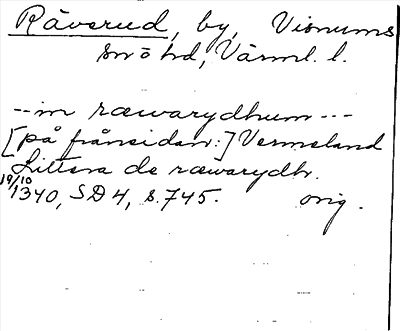 Räverud, by, Visnums
sn ö hd, Värml. l.
--- in ræwarydhum ---
[på frånsidan:] Vermeland
Littera de ræwarydh.
19/10
1340, SD 4, s. 745. orig.